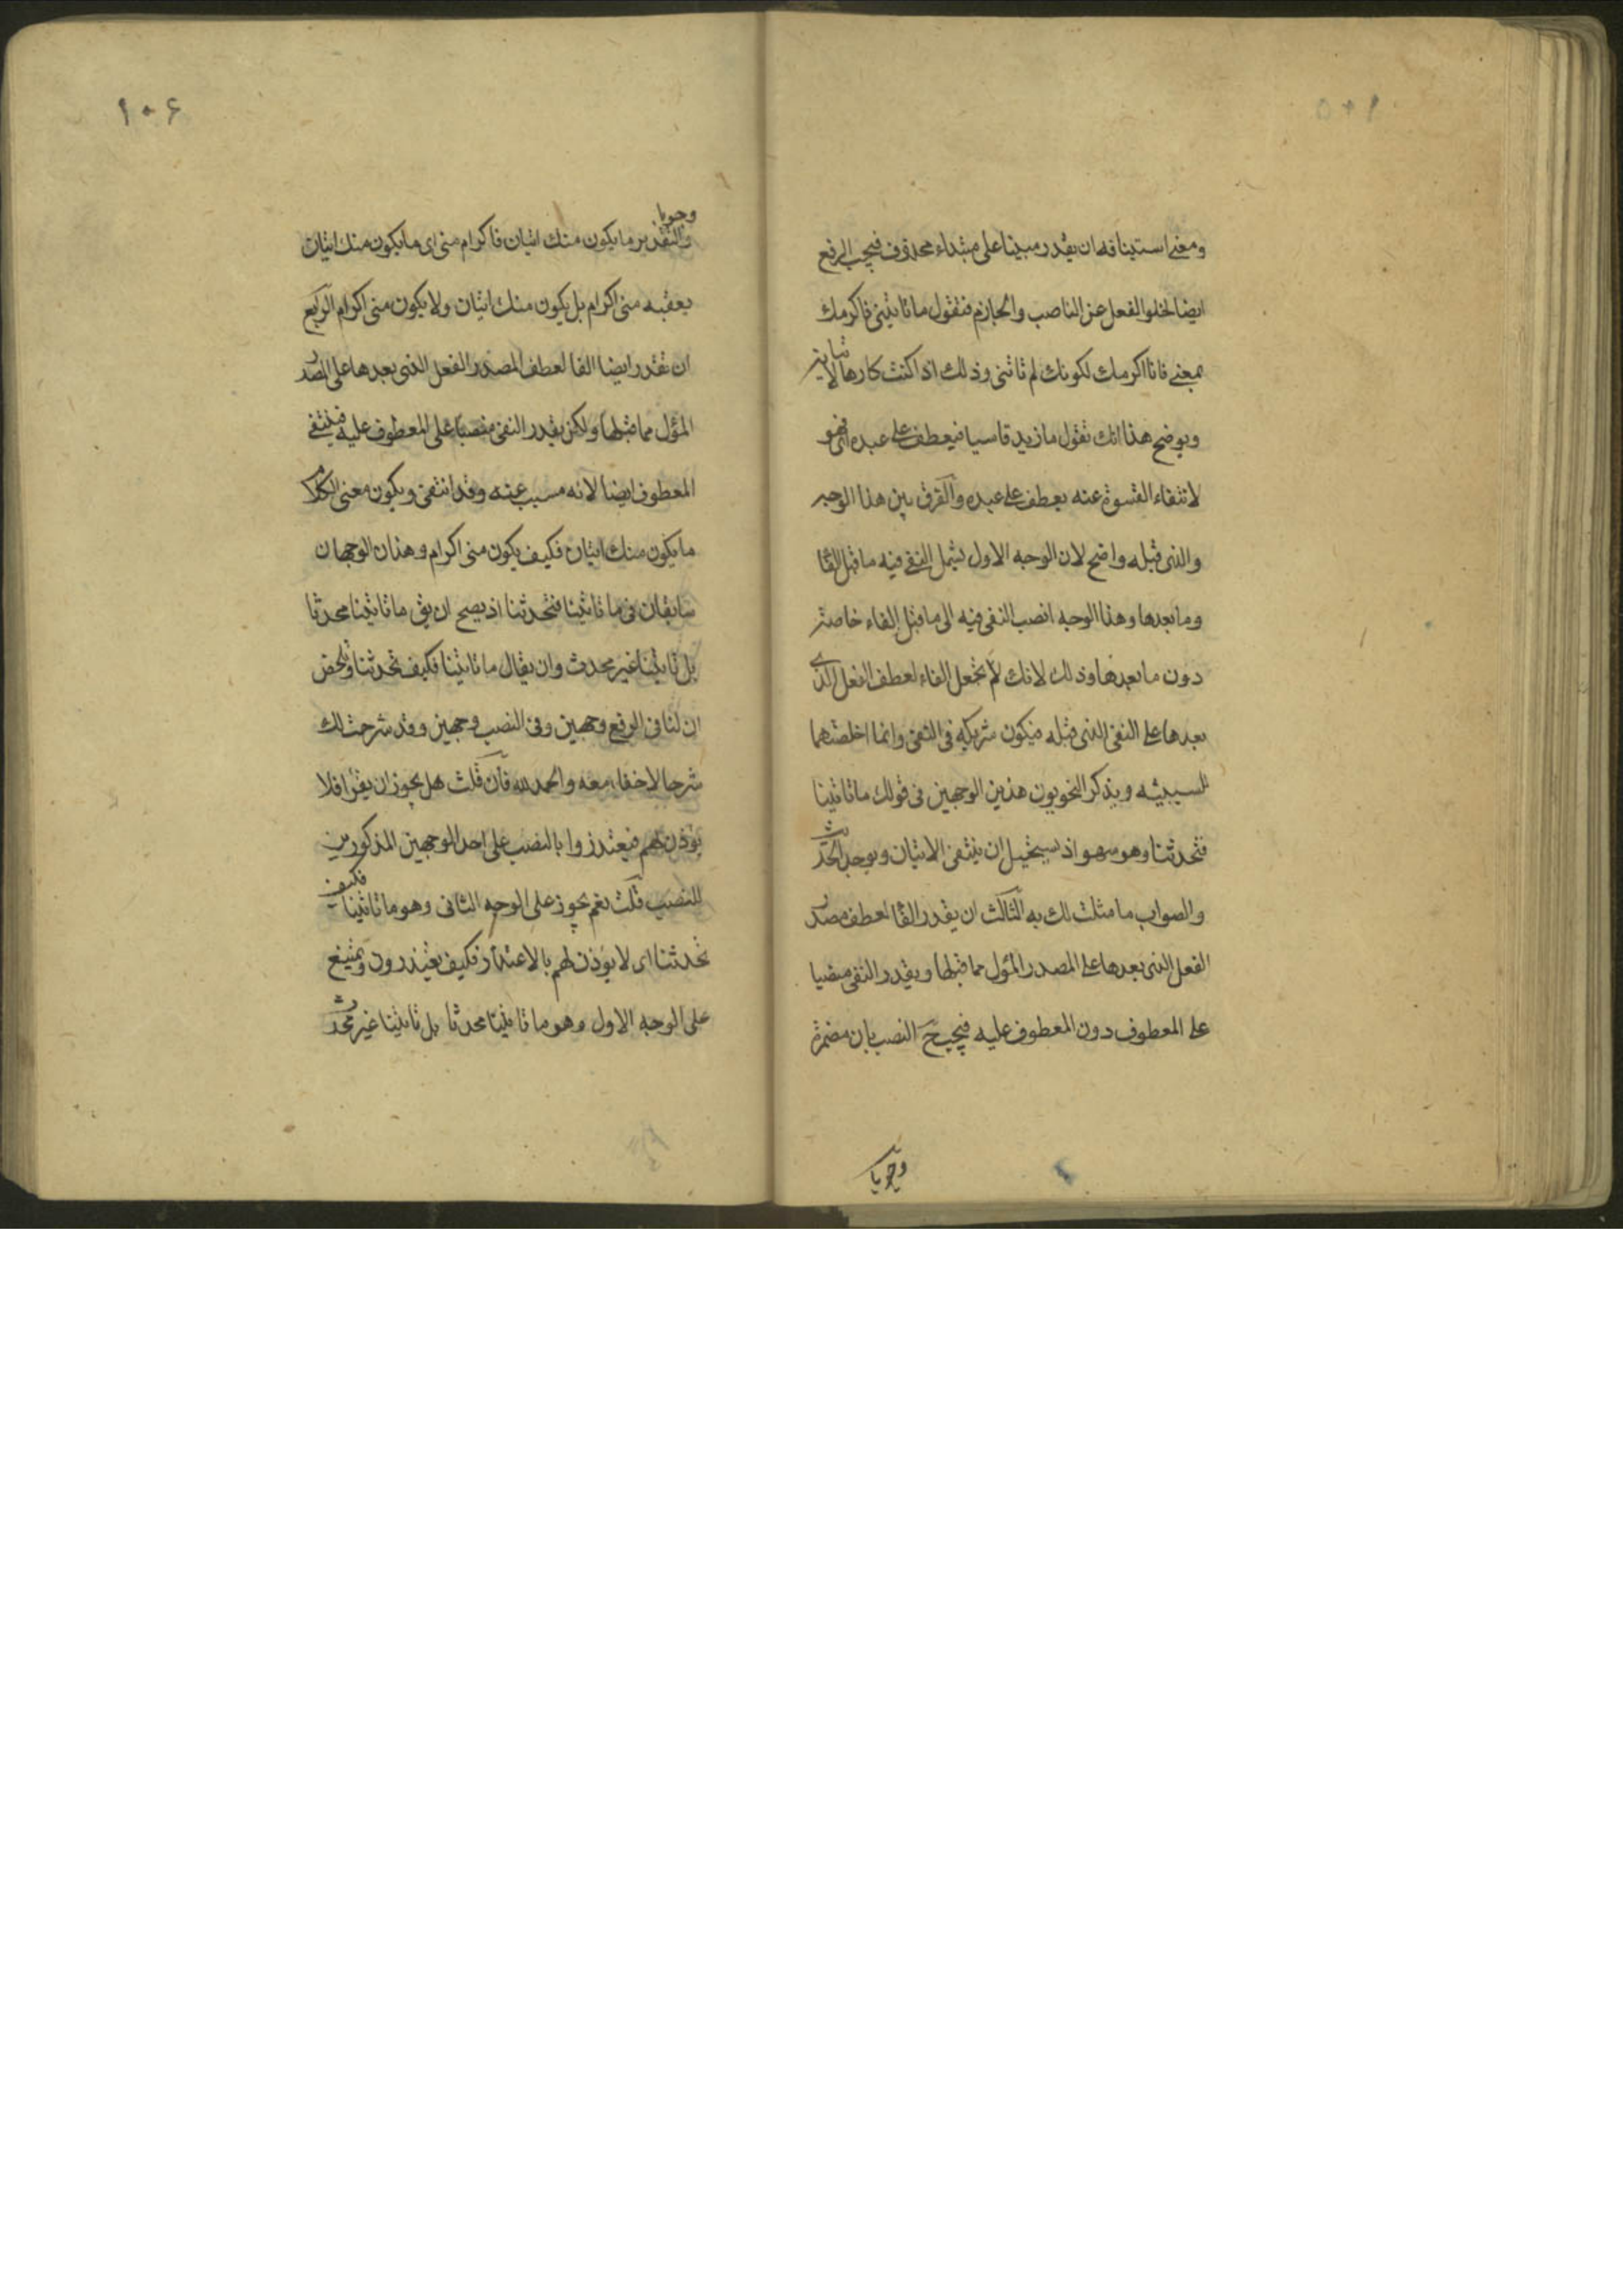 ومعنى استينافه ان يقدر مبينا على مبتداء محذوف فيجب الرفع
ايضا لخلو الفعل عن الناصب والجازم فتقول ما تاتينى فاكرمك
بمعنى فانا اكرمك لكونك لم تاتنى وذلك اذا كنت كارها لاتيانه
ويوضح هذا انك تقول ما زيد قاسيا فيعطف على عبده اى فهو
لانتفاء القسوة عنه يعطف على عبده والفرق بين هذا الوجه
والذى قبله واضح لان الوجه الاول يشمل النفى فيه ما قبل الفا
وما بعدها وهذا الوجه انصب النفى فيه الى ما قبل الفاء خاصة
دون ما بعدها وذلك لانك لم تجعل الفاء لعطف الفعل الذى
بعدها على النفى الذى قبله فيكون شريكه فى النفى وانما اخلصتهما
للسببية ويذكر النحويون هذين الوجهين فى قولك ما تاتينا
فتحدثنا وهو سهو اذ يستحيل ان ينتفى الاتيان ويوجد الحديث
والصواب ما مثلت لك به الثالث ان يقدر الفا لعطف مصدر
الفعل الذى بعدها على المصدر المؤل مما قبلها ويقدر النفى منصبا
على المعطوف دون المعطوف عليه فيجب ح النصب بان مضمرة
وجوبا
١٠٦
وجوبا
والتقدير ما يكون منك اتيان فاكرام منى اى ما يكون منك اتيان
يعقبه منى اكرام بل يكون منك اتيان ولا يكون منى اكرام الرابع
ان تقدر ايضا الفا لعطف المصدر الفعل الذى بعدها على المصدر
المؤل مما قبلها ولكن يقدر النفى منصبا على المعطوف عليه فينتفى
المعطوف ايضا لانه مسبب عنه وقد انتفى ويكون معنى الكلام
ما يكون منك اتيان فكيف يكون منى اكرام وهذان الوجهان
سابقان فى ما تاتينا فتحدثنا اذ يصح ان يق ما تاتينا محدثا
بل تاتينا غير محدث وان يقال ما تاتينا فكيف تحدثنا وتلخص
ان لنا فى الرفع وجهين وفى النصب وجهين وقد شرحت لك
شرحا لا خفاء معه والحمد لله فان قلت هل يجوز ان يقرا فلا
يؤذن لهم فيعتذروا بالنصب على احد الوجهين المذكورين
للنصب قلت نعم يجوز على الوجه الثانى وهو ما تاتينا فكيف
تحدثنا اى لا يؤذن لهم بالاعتذار فكيف يعتذرون ويمتنع
على الوجه الاول وهو ما تاتينا محدثا بل تاتينا غير محدث